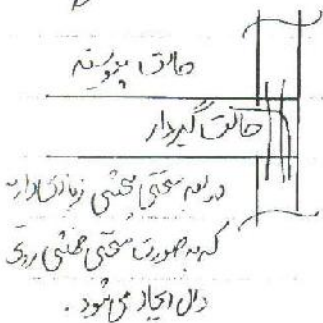 حالت پیوسته
حالت گیردار
دراند سختی خمشی زیادی دارند
که بصورت سختی خمشی روی
دال ایجاد می‌شود.